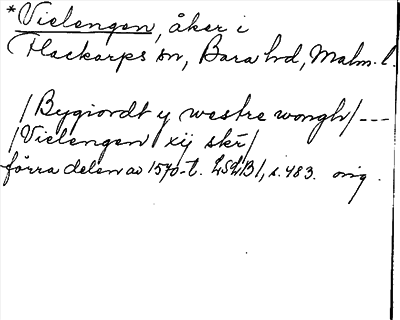 *Vielengen, åker i
Flackarps sn, Bara hd, Malm. l.
/Bygiordt y westre wongh/---
/Vielengen xij skr/
förra delen av 1570-t. LSLB1, s. 483. orig.